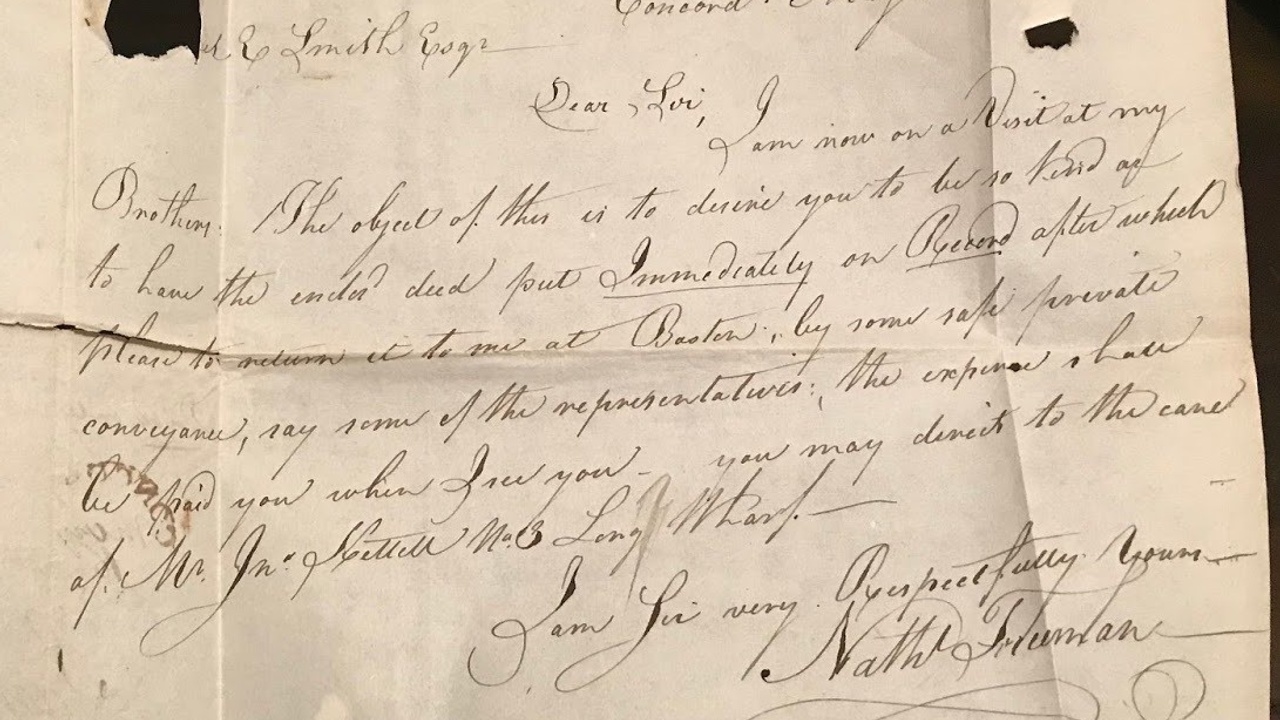 Concord.
E Smith Esqr
Dear Sir, I am now on a Visit at my
Brothers. The object of this is to desire you to be so kind as
to have the enclosd deed put Immediately on Record after which
please to return it to me at Boston, by some safe private
conveyance, say some of the representatives: the expense shall
be paid you when I see you - you may direct to the care
of Mr. Jno. Kettell No. 3 Long Wharf.
I am Sir very Respectfully Yours
Nathl Freeman